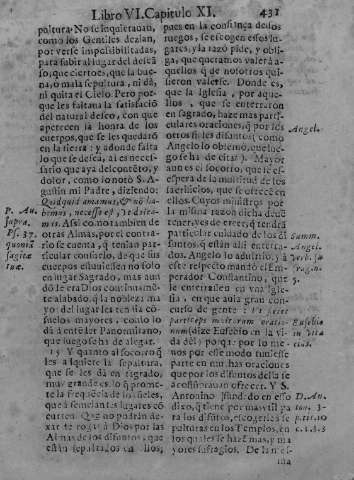 Libro VI. Capitulo XI. 431
pultura. No se inquietauan,
como los Gentiles dezian,
por verse impossibilitadas,
para subir al lugar del descã
so, que ciertoes, que la bue-
na, o mala sepultura, ni dà,
ni quita el Cielo. Pero por
que les faltaua la satisfaciõ
del natural deseo, con que
apetecen la honra de los
cuerpos, que se les quedarõ
en la tierra: y adonde falta
lo que se desea, ai es neces-
sario que aya descontēto, y
dolor, como lo notò S. A-
gustin mi Padre, diziendo:
Quidquid amamus, & nõ ha-
bemus, necesse est, ut dolea-
mus. Assi como tambien de
otras Almas, por el contra-
rio se cuenta, q̃ tenian par-
ticular consuelo, de que sus
cuerpos estuuiessen no solo
en lugar Sagrado, mas aun
dõ le era Dios continuamē-
te alabado, q̃ la nobleza ma
yor del lugar les tenia cõ-
suelos mayores, como lo
dà à entēder Panormitano,
que luego se ha de alegar.
15 Y quanto al socorro, q̃
les alquiere la sepultura,
que se les dà en sagrado,
muy grande es, lo q̃ prome-
te la frequēcia de los fieles,
que à semejantes lugares cõ
curren. Que no podràn de-
xar de rogar à Dios por las
Almas de los difuntos, que
estàn sepultados en ellos,
pues en la confiança de los
ruegos, se escogen essos lu-
gares, y la razõ pide, y obli-
ga, que queramos valer à a-
quellos q̃ de nosotros qui-
sieron valerse. Donde es,
que la Iglesia, por aque-
llos, que se enterraron
en sagrado, haze mas parti-
culares oraciones, q̃ por los
otros fieles difuntos (como
Angelo lo obseruò, en el lue-
go se ha de citar). Mayor
aun es el socorro, que se es-
espera de la multitud de los
sacrificios, que se ofrecē en
ellos. Cuyos ministros por
la misma razon dicha deuē
tener, y es de creer, q̃ tendrà
particular cuidado de los di
funtos, q̃ estàn alli enterra-
dos. Angelo lo aduirtio, y à
este respecto mandò el Em-
perador Constantino, que
le enterrassen en vna Igle-
sia, en que auia gran con-
curso de gente: Ut posset
particeps multarum oratio-
num (dize Eusebio en la vi-
da del) porq̃: por lo me-
nos por esse modo tuuiesse
parte en muchas oraciones
que por los difuntos dellas se
acostumbran ofrecer. Y S.
Antonino fundado en esso
dixo, q̃ tiene por mas vtil pa
ra los difuntos, escogerles se
pulturas en los Templos, en
los quales se hazē mas, y ma
yores sufragios. De la mes-
ma
P. Au.
supra
Ps. 37.
quoniã
sagitæ
tuæ.
Angel.
Summ.
Angel.
verb. se
Eusebio
in vita
D. An
ton. 3.
p. tit. 10